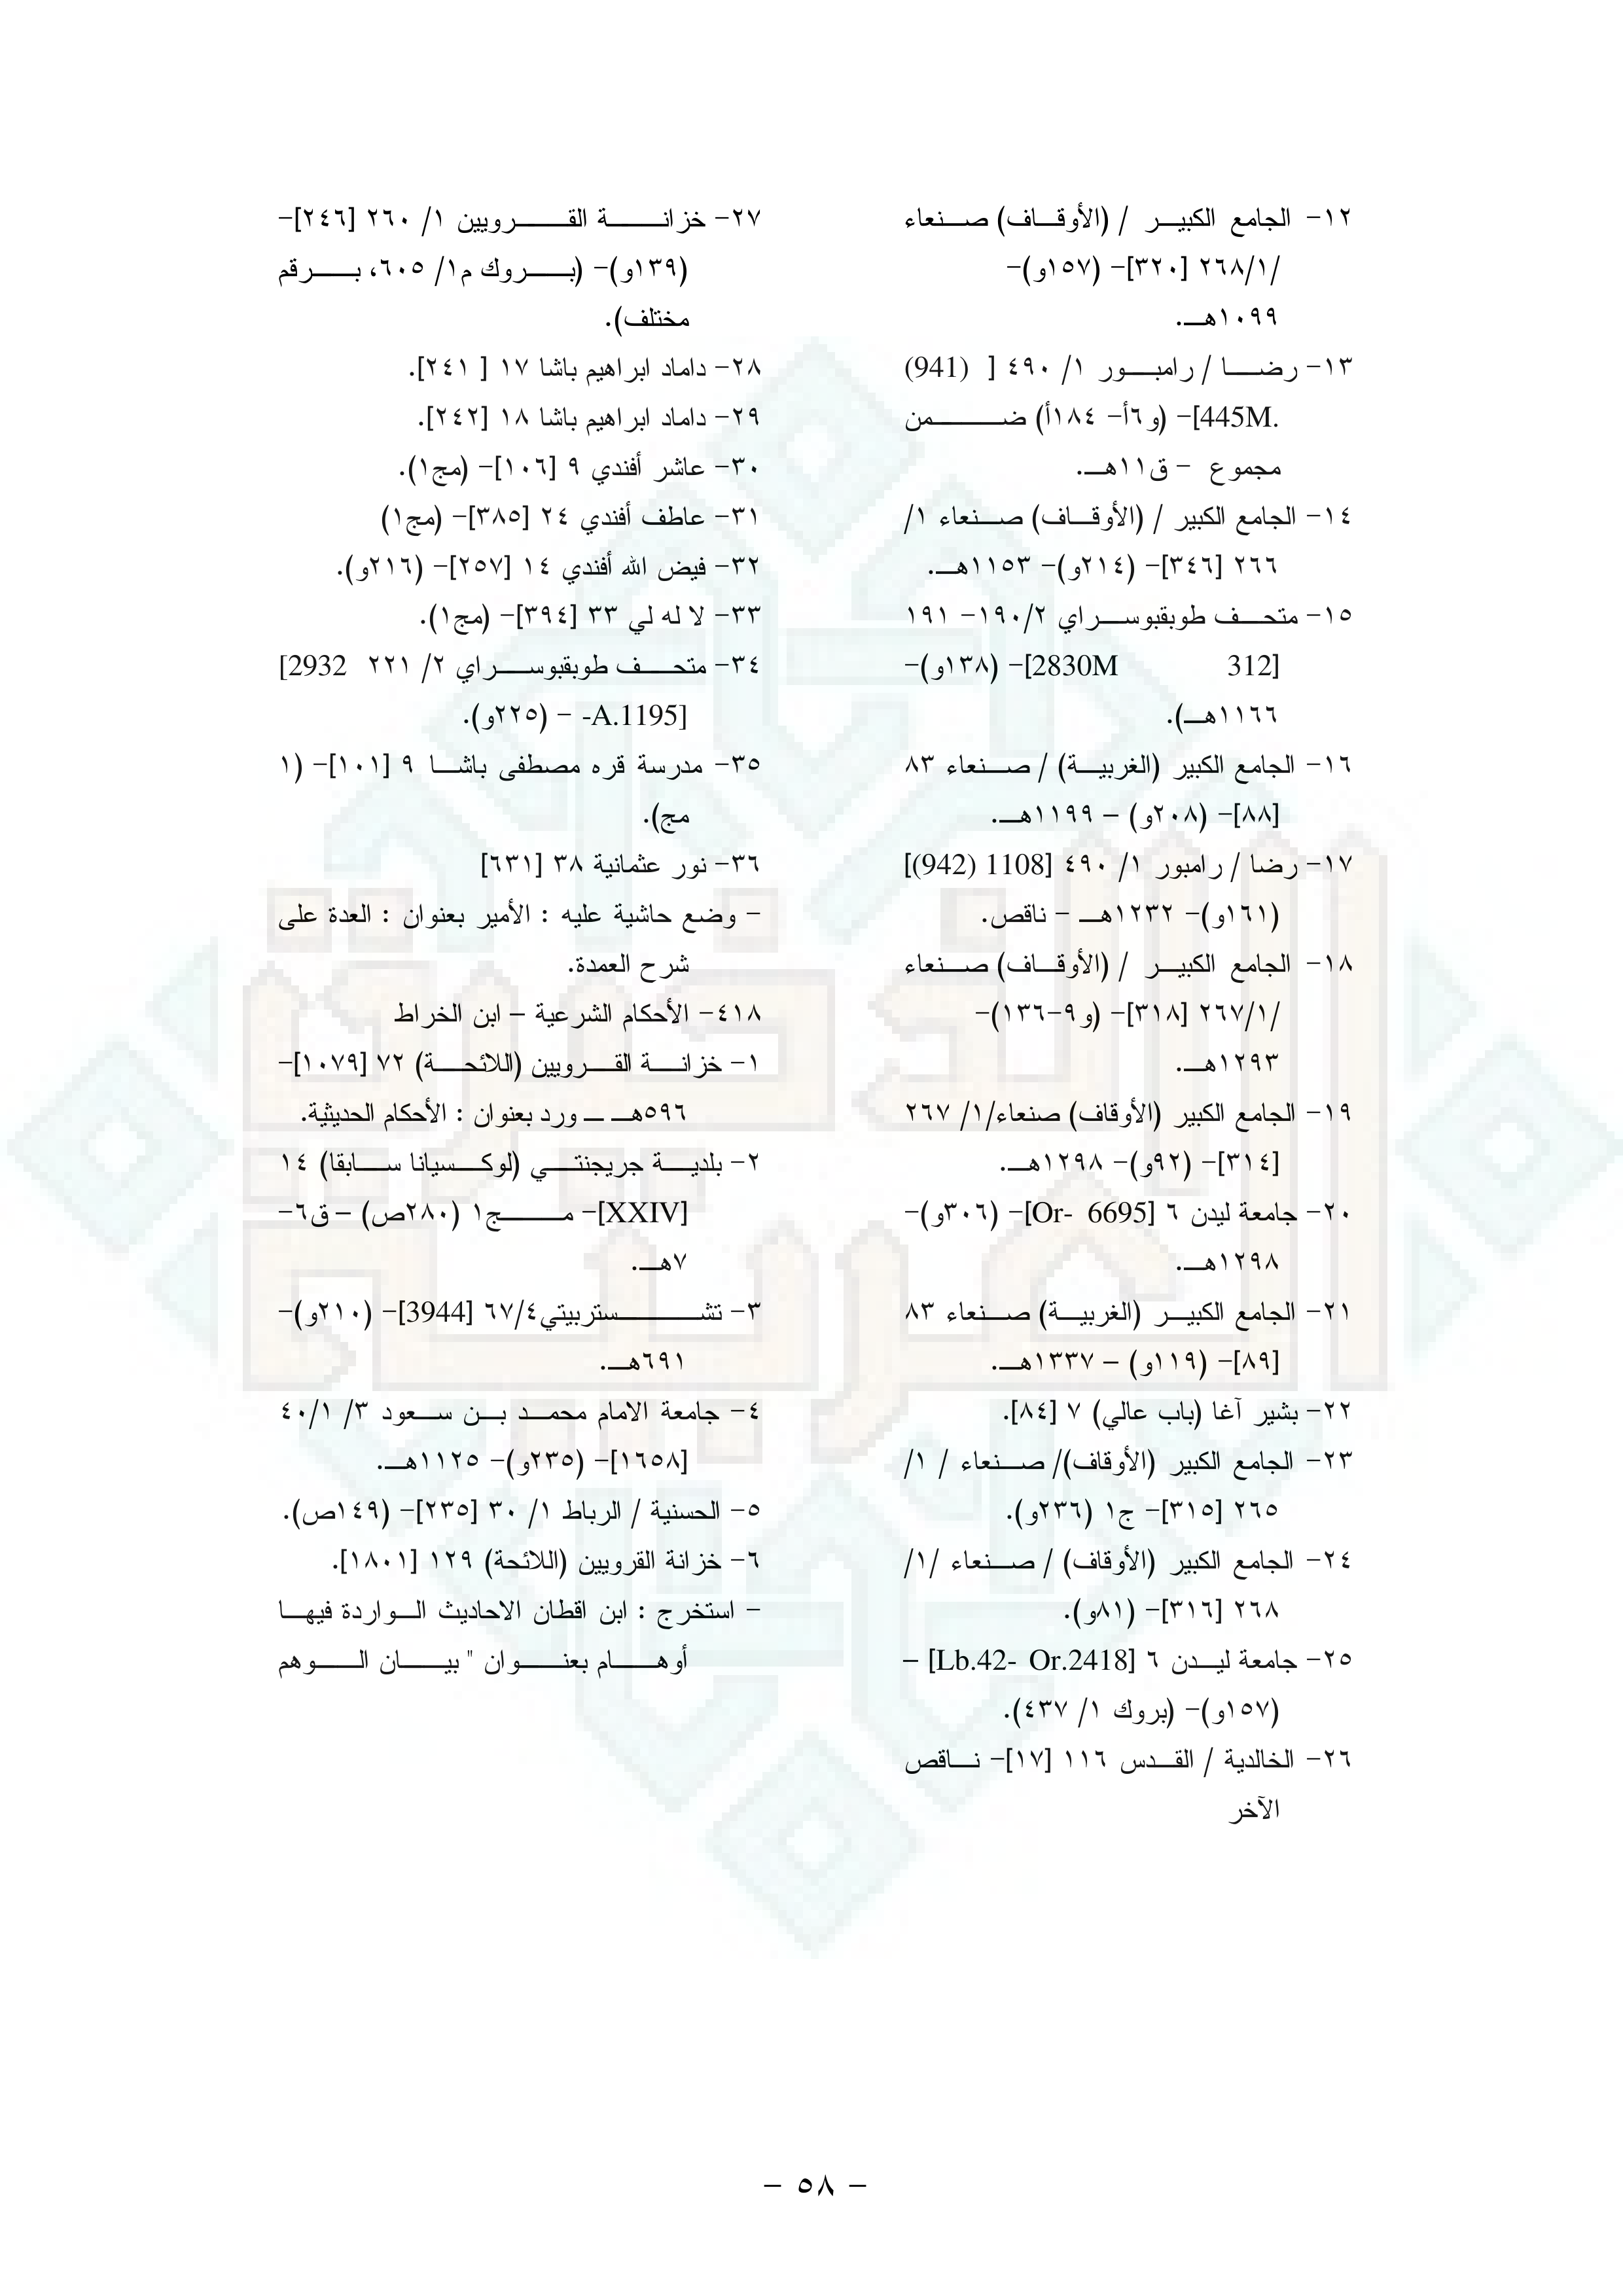 ١٢- الجامع الكبير / (الأوقاف) صنعاء
/٢٦٨/١ [٣٢٠]- (١٥٧و)-
١٠٩٩هـ.
١٣- رضا / رامبور ١/ ٤٩٠ [ (941)
445M.]- (و٦أ- ١٨٤أ) ضمن
مجموع - ق١١هـ.
١٤- الجامع الكبير / (الأوقاف) صنعاء ١/
٢٦٦ [٣٤٦]- (٢١٤و)- ١١٥٣هـ.
١٥- متحف طوبقبوسراي ١٩٠/٢- ١٩١
[312 2830M]- (١٣٨و)-
١١٦٦هـ).
١٦- الجامع الكبير (الغربية) / صنعاء ٨٣
[٨٨]- (٢٠٨و) - ١١٩٩هـ.
١٧- رضا / رامبور ١/ ٤٩٠ [1108 (942)]
(١٦١و)- ١٢٣٢هـ - ناقص.
١٨- الجامع الكبير / (الأوقاف) صنعاء
/٢٦٧/١ [٣١٨]- (و٩-١٣٦)-
١٢٩٣هـ.
١٩- الجامع الكبير (الأوقاف) صنعاء/١/ ٢٦٧
[٣١٤]- (٩٢و)- ١٢٩٨هـ.
٢٠- جامعة ليدن ٦ [Or- 6695]- (٣٠٦و)-
١٢٩٨هـ.
٢١- الجامع الكبير (الغربية) صنعاء ٨٣
[٨٩]- (١١٩و) - ١٣٣٧هـ.
٢٢- بشير آغا (باب عالي) ٧ [٨٤].
٢٣- الجامع الكبير (الأوقاف)/ صنعاء / ١/
٢٦٥ [٣١٥]- ج١ (٢٣٦و).
٢٤- الجامع الكبير (الأوقاف) / صنعاء /١/
٢٦٨ [٣١٦]- (٨١و).
٢٥- جامعة ليدن ٦ [Lb.42- Or.2418] -
(١٥٧و)- (بروك ١/ ٤٣٧).
٢٦- الخالدية / القدس ١١٦ [١٧]- ناقص
الآخر
٢٧- خزانة القرويين ١/ ٢٦٠ [٢٤٦]-
(١٣٩و)- (بروك م١/ ٦٠٥، برقم
مختلف).
٢٨- داماد ابراهيم باشا ١٧ [ ٢٤١].
٢٩- داماد ابراهيم باشا ١٨ [٢٤٢].
٣٠- عاشر أفندي ٩ [١٠٦]- (مج١).
٣١- عاطف أفندي ٢٤ [٣٨٥]- (مج١)
٣٢- فيض الله أفندي ١٤ [٢٥٧]- (٢١٦و).
٣٣- لا له لي ٣٣ [٣٩٤]- (مج١).
٣٤- متحف طوبقبوسراي ٢/ ٢٢١ [2932
A.1195-] - (٢٢٥و).
٣٥- مدرسة قره مصطفى باشا ٩ [١٠١]- (١
مج).
٣٦- نور عثمانية ٣٨ [٦٣١]
- وضع حاشية عليه : الأمير بعنوان : العدة على
شرح العمدة.
٤١٨- الأحكام الشرعية - ابن الخراط
١- خزانة القرويين (اللائحة) ٧٢ [١٠٧٩]-
٥٩٦هـ ــ ورد بعنوان : الأحكام الحديثية.
٢- بلدية جريجنتي (لوكسيانا سابقا) ١٤
[XXIV]- مج١ (٢٨٠ص) - ق٦-
٧هـ.
٣- تشستربيتي٦٧/٤ [3944]- (٢١٠و)-
٦٩١هـ.
٤- جامعة الامام محمد بن سعود ٣/ ٤٠/١
[١٦٥٨]- (٢٣٥و)- ١١٢٥هـ.
٥- الحسنية / الرباط ١/ ٣٠ [٢٣٥]- (١٤٩ص).
٦- خزانة القرويين (اللائحة) ١٢٩ [١٨٠١].
- استخرج : ابن اقطان الاحاديث الواردة فيها
أوهام بعنوان " بيان الوهم
- ٥٨ -